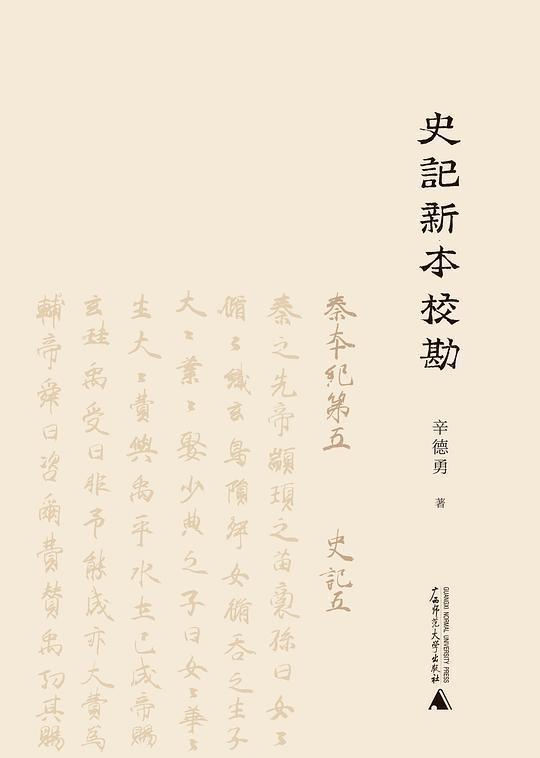 史記新本校勘
辛德勇 著
GUANGXI NORMAL UNIVERSITY PRESS
广西师范大学出版社
秦本紀第五 史記五
秦之先帝顓頊之苗裔孫曰女〻
脩〻織玄鳥隕卵女脩吞之生子
大〻業〻娶少典之子曰女〻華〻
生大〻費與禹平水土已成帝賜
玄珪禹受曰非予能成亦大費為
輔帝舜曰咨爾費贊禹功其賜